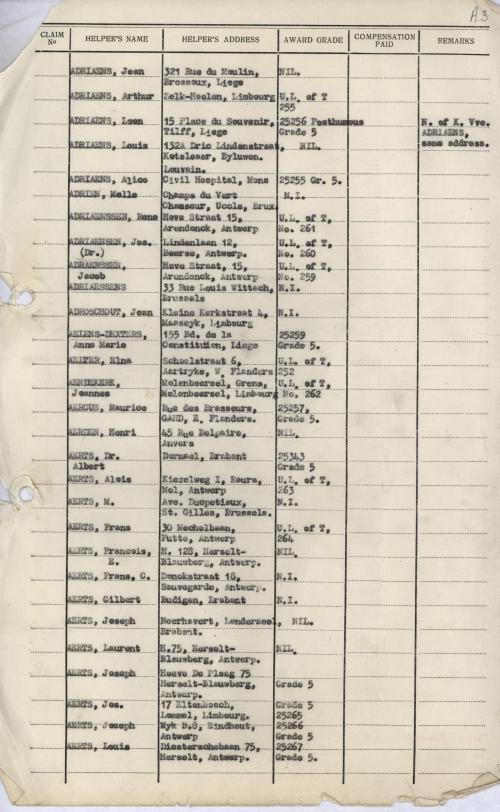 A.3
CLAIM No HELPER'S NAME HELPER'S ADDRESS AWARD GRADE COMPENSATION PAID REMARKS
ADRIAENS, Jean 321 Rue du Moulin, NIL.
Bressoux, Liege
ADRIAENS, Arthur Zelk-Haelen, Limbourg U.L. of T
255
ADRIAENS, Leon 15 Place du Souvenir, 25256 Posthumous N. of K. Vve.
Tilff, Liege Grade 5 ADRIAENS,
ADRIAENS, Louis 132A Dric Lindenstraat, NIL. same address.
Kotslaar, Byluwen.
Louvain.
ADRIAENS, Alice Civil Hospital, Mons 25255 Gr. 5.
ADRIEN, Melle Champs du Vert N.I.
Chasseur, Uccle, Brux.
ADRIAENSSEN, Rene Hove Straat 15, U.L. of T,
Arendonck, Antwerp No. 261
ADRIAENSEN, Jos. Lindenlaan 12, U.L. of T,
(Dr.) Beerse, Antwerp. No. 260
ADRAENSSEN, Hove Straat, 15, U.L. of T,
Jacob Arendonck, Antwerp No. 259
ADRIAESSENS 33 Rue Louis Wittsch, N.I.
Brussels
ADHOSCHOUT, Jean Kleine Kerkstraat 4, N.I.
Maaseyk, Limbourg
AELENS-DEXTERS, 155 Bd. de la 25259
Anne Marie Constitution, Liege Grade 5.
AEIFER, Elna Schoolstraat 6, U.L. of T,
Aartryke, W. Flanders 252
AENDEKERK, Molenbeersel, Grens, U.L. of T,
Joannes Molenbeersel, Limbourg No. 262
AERCUS, Maurice Rue des Brasseurs, 25257,
GAND, E. Flanders. Grade 5.
AERDEN, Henri 45 Rue Delpaire, NIL.
Anvers
AERTS, Dr. Dormael, Brabant 25343
Albert Grade 5
AERTS, Alois Kiezelweg I, Raura, U.L. of T,
Mol, Antwerp 263
AERTS, M. Ave. Ducpetiaux, N.I.
St. Gilles, Brussels.
AERTS, Frans 30 Mechelbaan, U.L. of T,
Putte, Antwerp 264
AERTS, Francois, H. 128, Herselt- NIL
E. Blauwberg, Antwerp.
AERTS, Frans, C. Donckstraat 18, N.I.
Sauvegarde, Antwerp.
AERTS, Gilbert Budigen, Brabant N.I.
AERTS, Joseph Neerhavert, Londerseel, NIL.
Brabant.
AERTS, Laurent H.75, Herselt- NIL
Blauwberg, Antwerp.
AERTS, Joseph Hoeve De Ploeg 75
Herselt-Blauwberg, Grade 5
Antwerp.
AERTS, Jos. 17 Eltenbosch, Grade 5
Lommel, Limbourg. 25265
AERTS, Joseph Wyk B.8, Eindhout, 25266
Antwerp Grade 5
AERTS, Louis Diesterschebaan 75, 25267
Herselt, Antwerp. Grade 5.